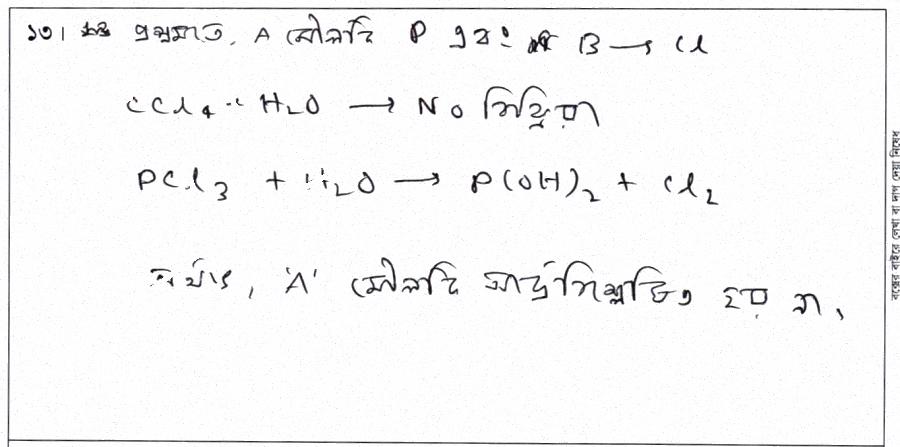 ১৩। প্রশ্নমতে, A মৌলটি P এবং B → Cl
CCl4 + H2O → No বিক্রিয়া
PCl3 + H2O → P(OH)2 + Cl2
অর্থাৎ, 'A' মৌলটি আর্দ্রবিশ্লেষিত হয় না,
বক্সের বাইরে লেখা বা দাগ দেয়া নিষেধ